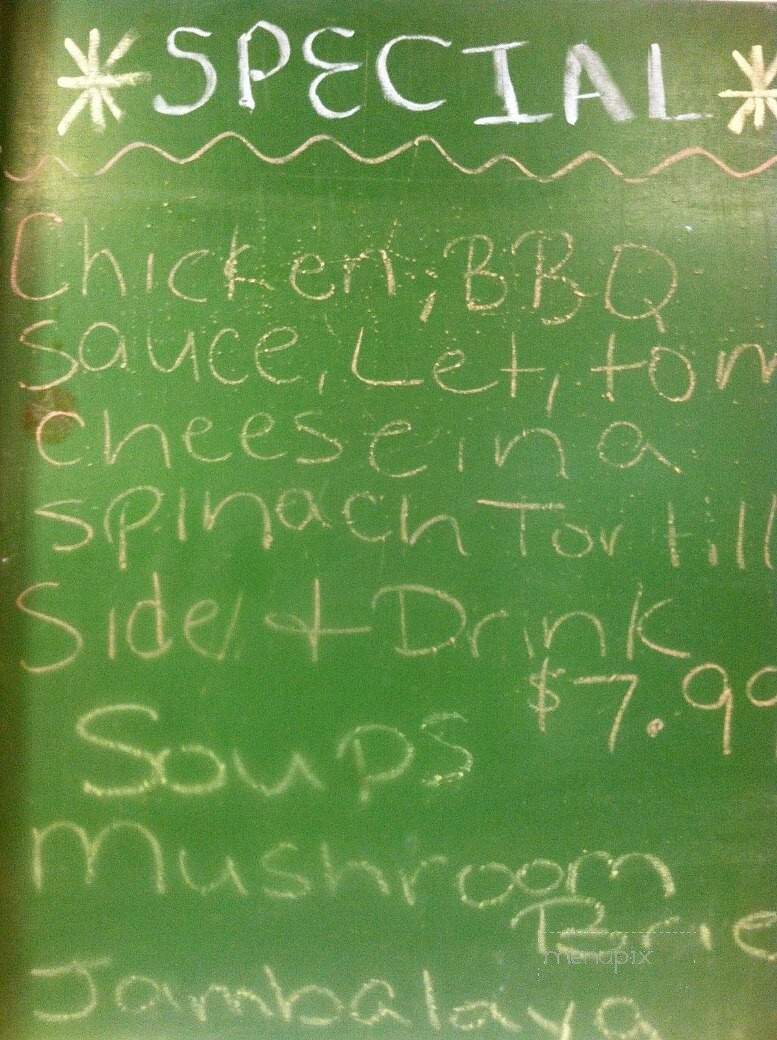 * SPECIAL *
Chicken, BBQ
Sauce, Let, tom
cheese in a
spinach Tortill
Side + Drink
$7.99
Soups
Mushroom
Brie
Jambalaya
menupix